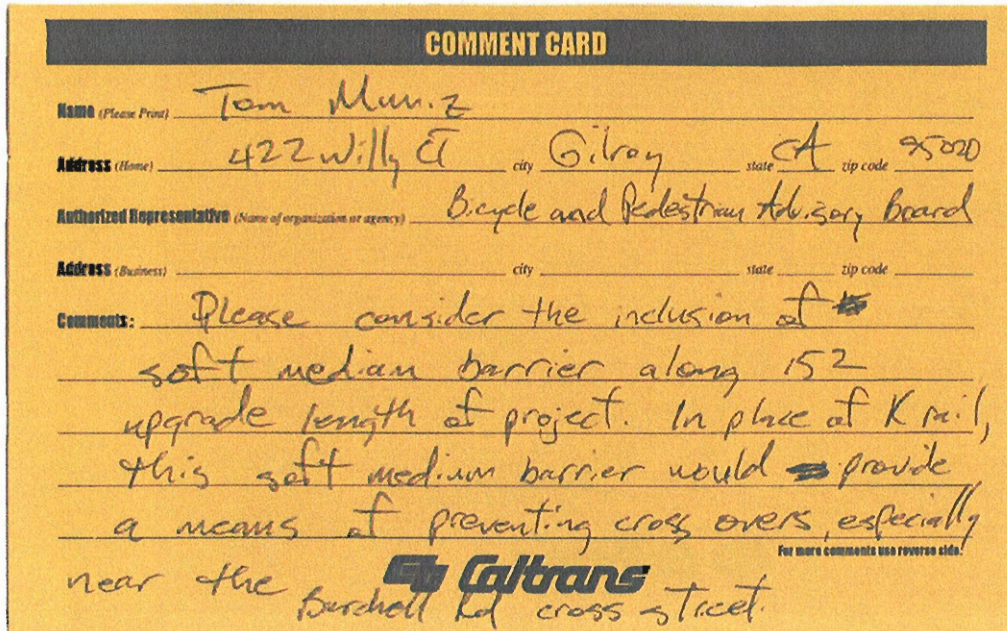 COMMENT CARD
Name (Please Print) Tom Muniz
Address (Home) 422 Willy Ct city Gilroy state CA zip code 95020
Authorized Representative (Name of organization or agency) Bicycle and Pedestrian Advisory Board
Address (Business) city state zip code
Comments: Please consider the inclusion of
soft median barrier along 152
upgrade length of project. In place of K rail,
this soft medium barrier would provide
a means of preventing cross overs, especially
For more comments use reverse side.
near the Caltrans
Burchell Rd cross street.